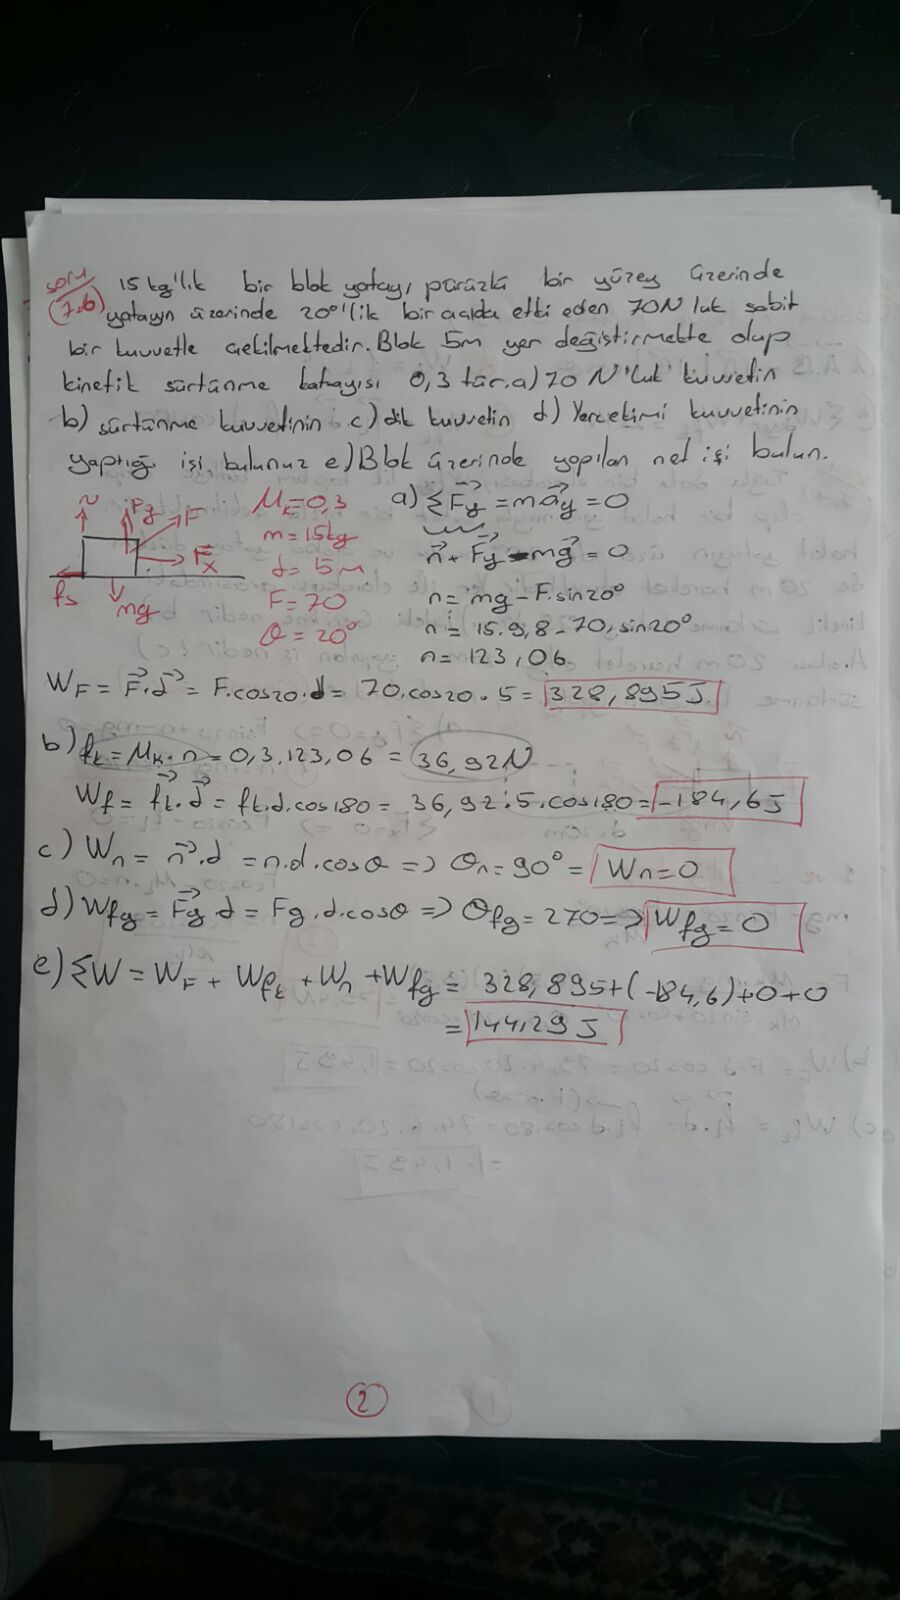 soru
(7.b) 15 kg'lık bir blok yatayı pürüzlü bir yüzey üzerinde
yatayın üzerinde 20°'lik bir açıda etki eden 70N luk sabit
bir kuvvetle çekilmektedir. Blok 5m yer değiştirmekte olup
kinetik sürtünme katsayısı 0,3 tür. a) 70 N'luk kuvvetin
b) sürtünme kuvvetinin c) dik kuvvetin d) Yerçekimi kuvvetinin
yaptığı işi bulunuz e) Blok üzerinde yapılan net işi bulun.
N Fy F Fx fs mg
μk=0,3
m=15kg
d=5m
F=70
θ=20°
a) ΣFy=may=0
n+Fy-mg=0
n=mg-F.sin20°
n=15.9,8-70.sin20°
n=123,06
WF=F.d=F.cos20.d=70.cos20.5=328,895J
b) fk=μk.n=0,3.123,06=36,92N
Wf=fk.d=fk.d.cos180=36,92.5.cos180=-184,6J
c) Wn=n.d=n.d.cosθ=>θn=90°=Wn=0
d) Wfg=Fg.d=Fg.d.cosθ=>θfg=270=>Wfg=0
e) ΣW=WF+Wfk+Wn+Wfg=328,895+(-184,6)+0+0
=144,29J
2